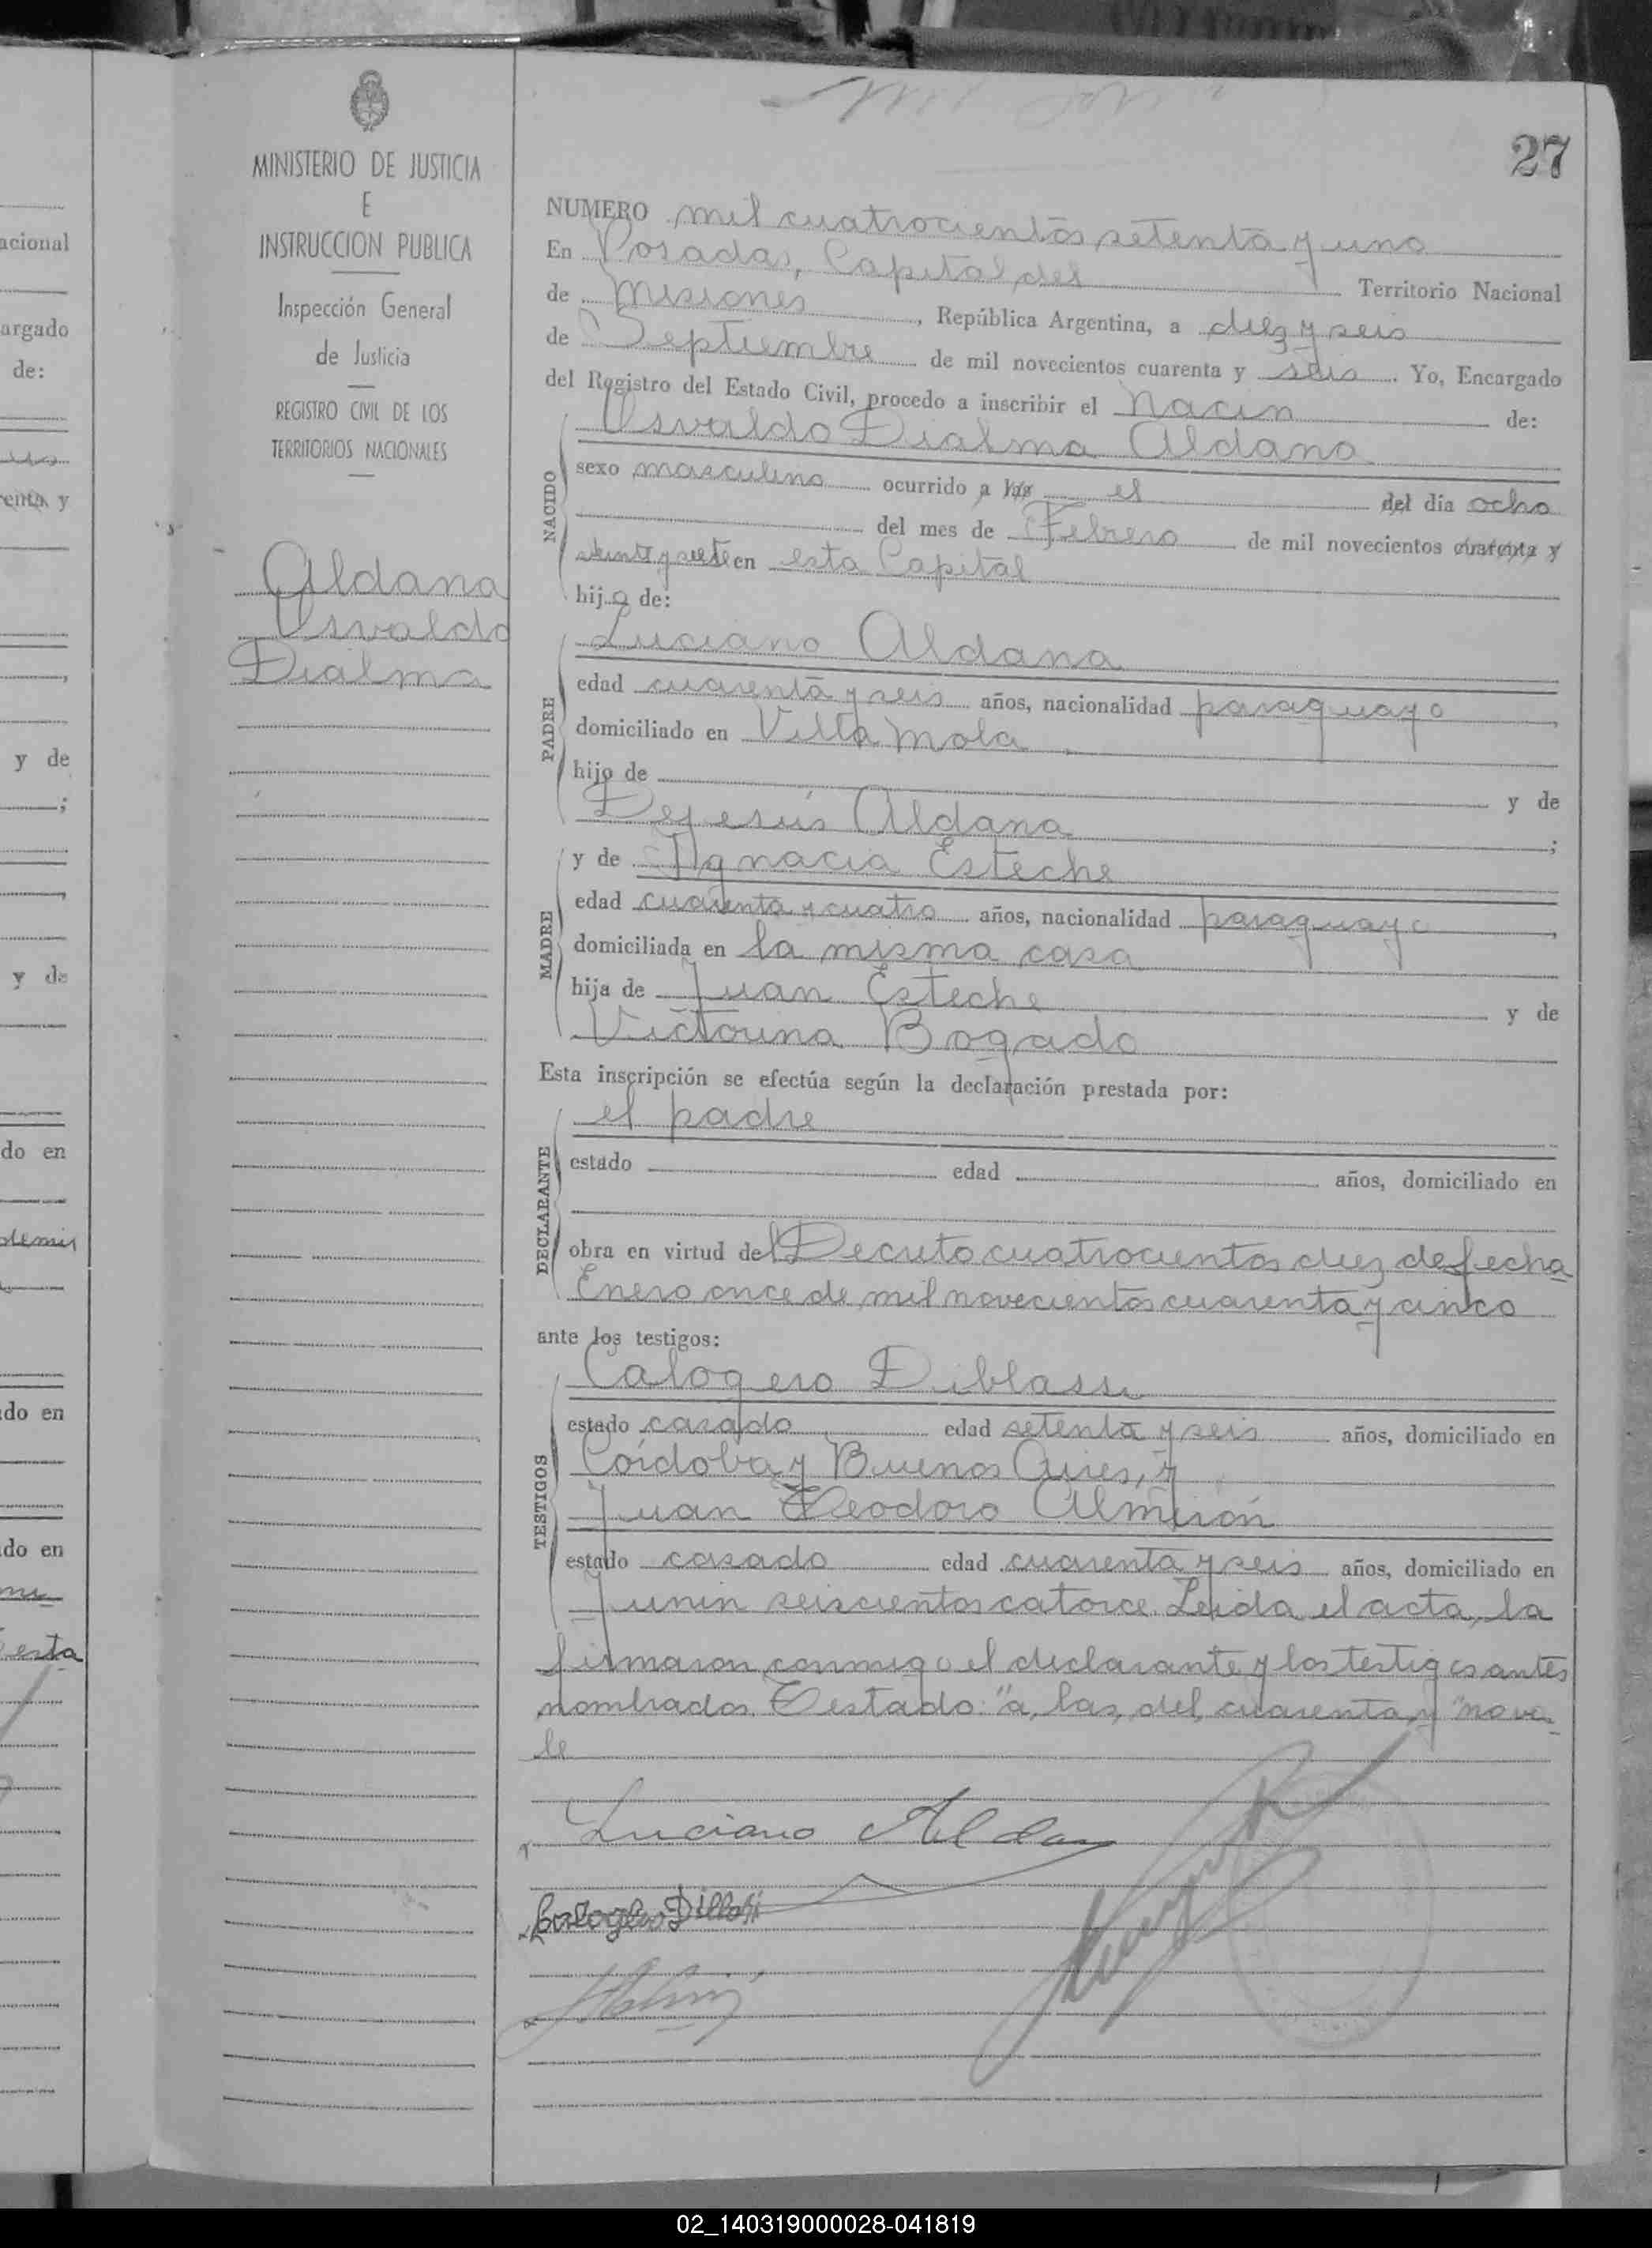 27
MINISTERIO DE JUSTICIA
E
INSTRUCCION PUBLICA
Inspección General
de Justicia
REGISTRO CIVIL DE LOS
TERRITORIOS NACIONALES
Aldana
Osvaldo
Dialma
NUMERO mil cuatrocientos setenta y uno
En Posadas, Capital del Territorio Nacional
de Misiones, República Argentina, a diez y seis
de Septiembre de mil novecientos cuarenta y seis. Yo, Encargado
del Registro del Estado Civil, procedo a inscribir el Nacim de:
NACIDO
Osvaldo Dialma Aldana
sexo masculino ocurrido a las el del día ocho
del mes de Febrero de mil novecientos cuarenta y
veinte y siete en esta Capital
hijo de:
PADRE
Luciano Aldana
edad cuarenta y seis años, nacionalidad paraguayo
domiciliado en Villa Mola
hijo de y de
Dejesús Aldana;
MADRE
y de Ygnacia Esteche
edad cuarenta y cuatro años, nacionalidad paraguaya
domiciliada en la misma casa
hija de Juan Esteche y de
Victorina Bogado
Esta inscripción se efectúa según la declaración prestada por:
DECLARANTE
el padre
estado edad años, domiciliado en
obra en virtud del Decreto cuatrocientos diez de fecha
Enero once de mil novecientos cuarenta y cinco
ante los testigos:
TESTIGOS
Calogero Diblassi
estado casado edad setenta y seis años, domiciliado en
Córdoba y Buenos Aires, y
Juan Teodoro Almirón
estado casado edad cuarenta y seis años, domiciliado en
Junin seiscientos catorce. Leida el acta, la
firmaron conmigo el declarante y los testigos antes
nombrados. Testado: "a, las, del, cuarenta, y" no va-
le
Luciano Aldan
02_140319000028-041819